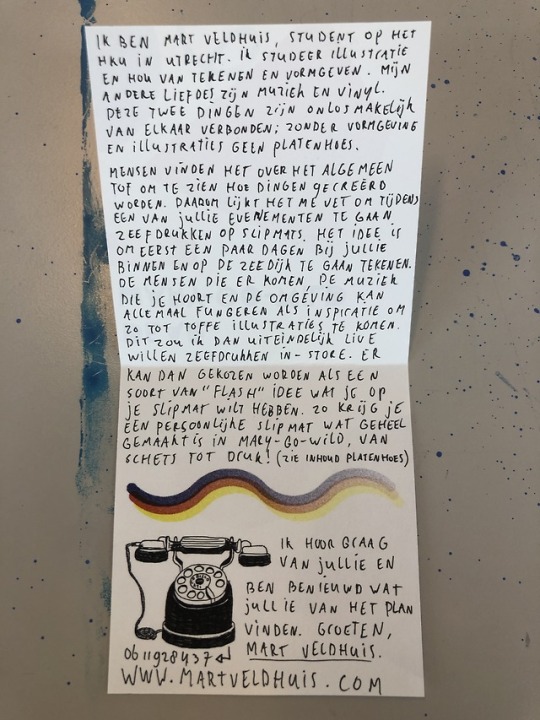 IK BEN MART VELDHUIS, STUDENT OP HET
HKU IN UTRECHT. IK STUDEER ILLUSTRATIE
EN HOU VAN TEKENEN EN VORMGEVEN. MIJN
ANDERE LIEFDES ZIJN MUZIEK EN VINYL.
DEZE TWEE DINGEN ZIJN ONLOSMAKELIJK
VAN ELKAAR VERBONDEN; ZONDER VORMGEVING
EN ILLUSTRATIES GEEN PLATENHOES.
MENSEN VINDEN HET OVER HET ALGEMEEN
TOF OM TE ZIEN HOE DINGEN GECREËRD
WORDEN. DAAROM LIJKT HET ME VET OM TIJDENS
EEN VAN JULLIE EVENEMENTEN TE GAAN
ZEEFDRUKKEN OP SLIPMATS. HET IDEE IS
OM EERST EEN PAAR DAGEN BIJ JULLIE
BINNEN EN OP DE ZEEDIJK TE GAAN TEKENEN.
DE MENSEN DIE ER KOMEN, DE MUZIEK
DIE JE HOORT EN DE OMGEVING KAN
ALLEMAAL FUNGEREN ALS INSPIRATIE OM
ZO TOT TOFFE ILLUSTRATIES TE KOMEN.
DIT ZOU IK DAN UITEINDELIJK LIVE
WILLEN ZEEFDRUKKEN IN-STORE. ER
KAN DAN GEKOZEN WORDEN ALS EEN
SOORT VAN "FLASH" IDEE WAT JE OP
JE SLIPMAT WILT HEBBEN. ZO KRIJG JE
EEN PERSOONLIJKE SLIPMAT WAT GEHEEL
GEMAAKT IS IN MARY-GO-WILD, VAN
SCHETS TOT DRUK! (ZIE INHOUD PLATENHOES)
IK HOOR GRAAG
VAN JULLIE EN
BEN BENIEUWD WAT
JULLIE VAN HET PLAN
VINDEN. GROETEN,
MART VELDHUIS.
0611928437
WWW.MARTVELDHUIS.COM